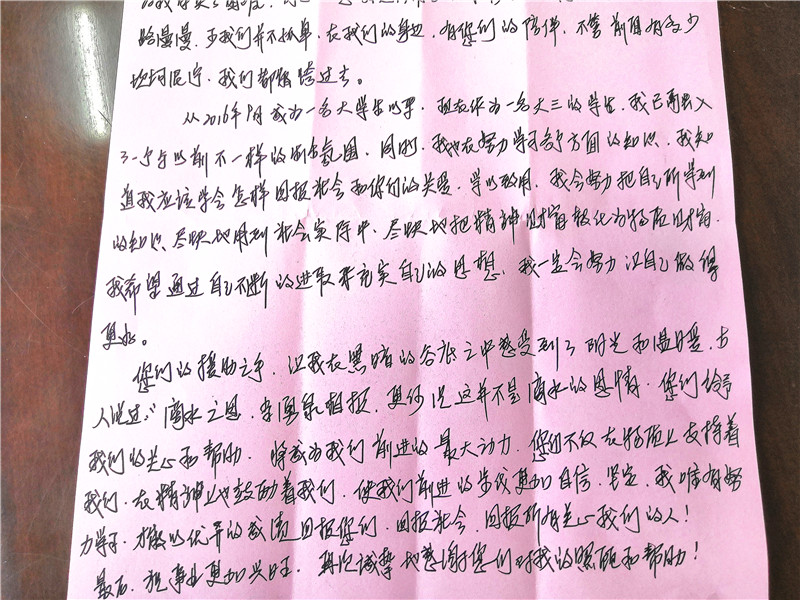 路漫漫，但我们并不孤单，在我们的身边，有您们的陪伴，不管前面有多少
坎坷泥泞，我们都能跨过去。
从2016年9月成为一名大学生以来，现在作为一名大三的学生，我已融入
了一个与以前不一样的氛围，同时，我也在努力学习各方面的知识，我知
道我应该学会怎样回报社会和你们的关爱，学以致用，我会努力把自己所学到
的知识，尽快地用到社会实际中，尽快地把精神财富转化为物质财富，
我希望通过自己不断的进取来充实自己的思想，我一定会努力让自己做得
更好。
您们的援助之手，让我在黑暗的谷底之中感受到了阳光和温暖，古
人说过：滴水之恩，涌泉相报，更何况这并不是滴水的恩情，您们给予
我们的关心和帮助，将成为我们前进的最大动力，您们不仅在物质上支持着
我们，在精神上也鼓励着我们，使我们前进的步伐更加自信，坚定，我唯有努
力学习，才能以优异的成绩回报您们，回报社会，回报所有关心我们的人！
最后，祝事业更加兴旺，再次诚挚地感谢您们对我的照顾和帮助！